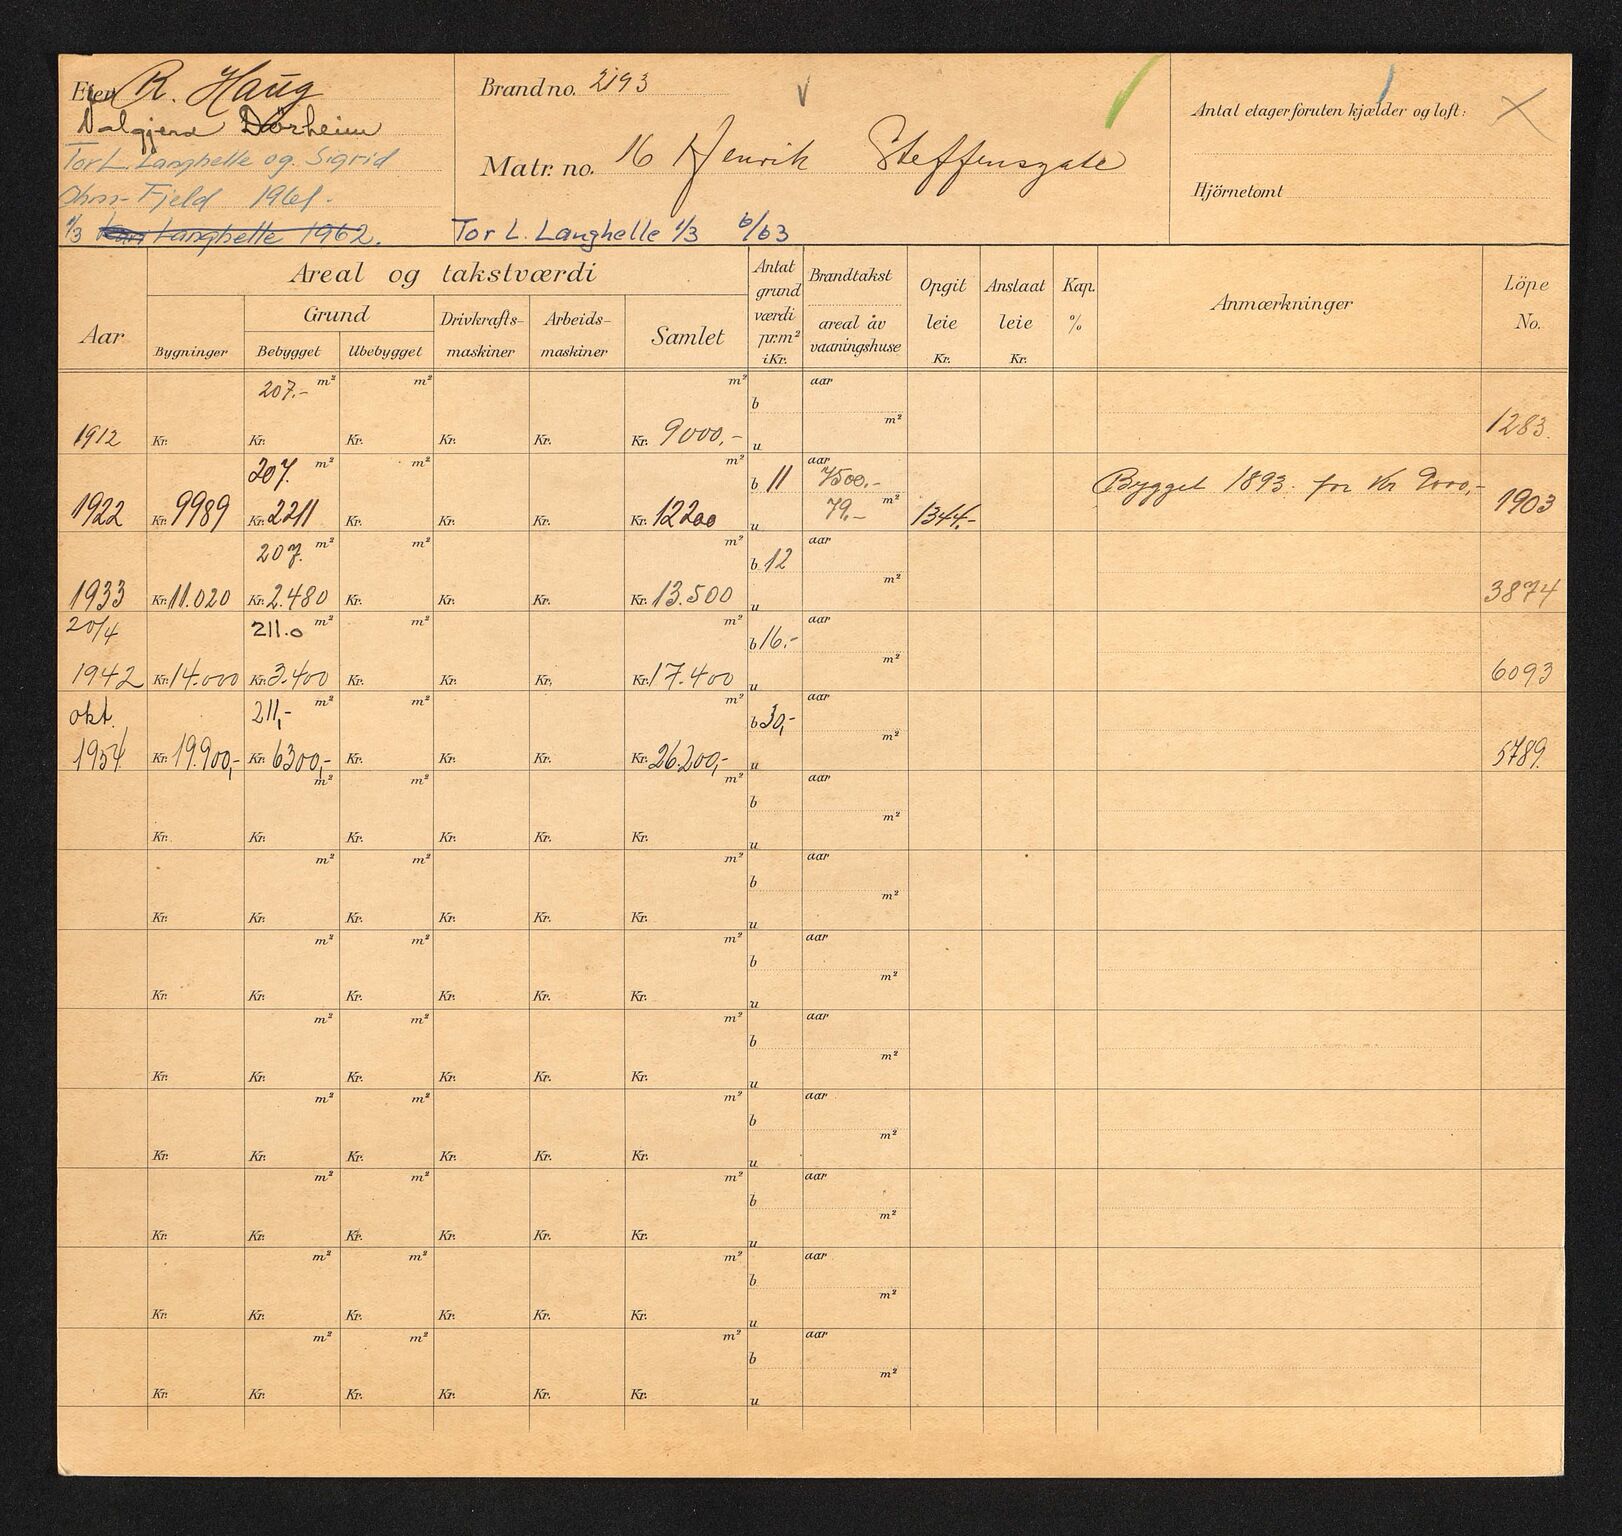 Eier R. Haug
Valgjerd Dörheim
Tor L. Langhelle og Sigrid
Fjeld 1961.
1/3 Langhelle 1962.
Tor L. Langhelle 1/3 6/63
Brand no. 2193
Matr. no. 16 Henrik Steffensgate
Antal etager foruten kjælder og loft: 1
Hjörnetomt
Aar
Areal og takstværdi
Bygninger
Grund
Bebygget Ubebygget
Drivkrafts-maskiner
Arbeids-maskiner
Samlet
Antat grund værdi pr.m² i Kr.
Brandtakst
areal åv vaaningshuse
Opgit leie Kr.
Anslaat leie Kr.
Kap. %
Anmærkninger
Löpe No.
207.- m² m² m² b aar
1912 Kr. Kr. Kr. Kr. Kr. Kr. 9000,- u m² 1283.
207. m² m² m² b 11 aar 7500.- Bygget 1893 for Kr 9000,-
1922 Kr. 9989 Kr. 2211 Kr. Kr. Kr. Kr. 12200 u 79.- m² 1344.- 1903
207. m² m² m² b 12 aar
1933 Kr. 11.020 Kr. 2.480 Kr. Kr. Kr. Kr. 13.500 u m² 3874
20/4 211.0 m² m² m² b 16.- aar
1942 Kr. 14.000 Kr. 3.400 Kr. Kr. Kr. Kr. 17.400 u m² 6093
okt. 211,- m² m² m² b 30,- aar
1954 Kr. 19.900,- Kr. 6300,- Kr. Kr. Kr. Kr. 26.200,- u m² 5789.
m² m² m² b aar
Kr. Kr. Kr. Kr. Kr. Kr. u m²
m² m² m² b aar
Kr. Kr. Kr. Kr. Kr. Kr. u m²
m² m² m² b aar
Kr. Kr. Kr. Kr. Kr. Kr. u m²
m² m² m² b aar
Kr. Kr. Kr. Kr. Kr. Kr. u m²
m² m² m² b aar
Kr. Kr. Kr. Kr. Kr. Kr. u m²
m² m² m² b aar
Kr. Kr. Kr. Kr. Kr. Kr. u m²
m² m² m² b aar
Kr. Kr. Kr. Kr. Kr. Kr. u m²
m² m² m² b aar
Kr. Kr. Kr. Kr. Kr. Kr. u m²